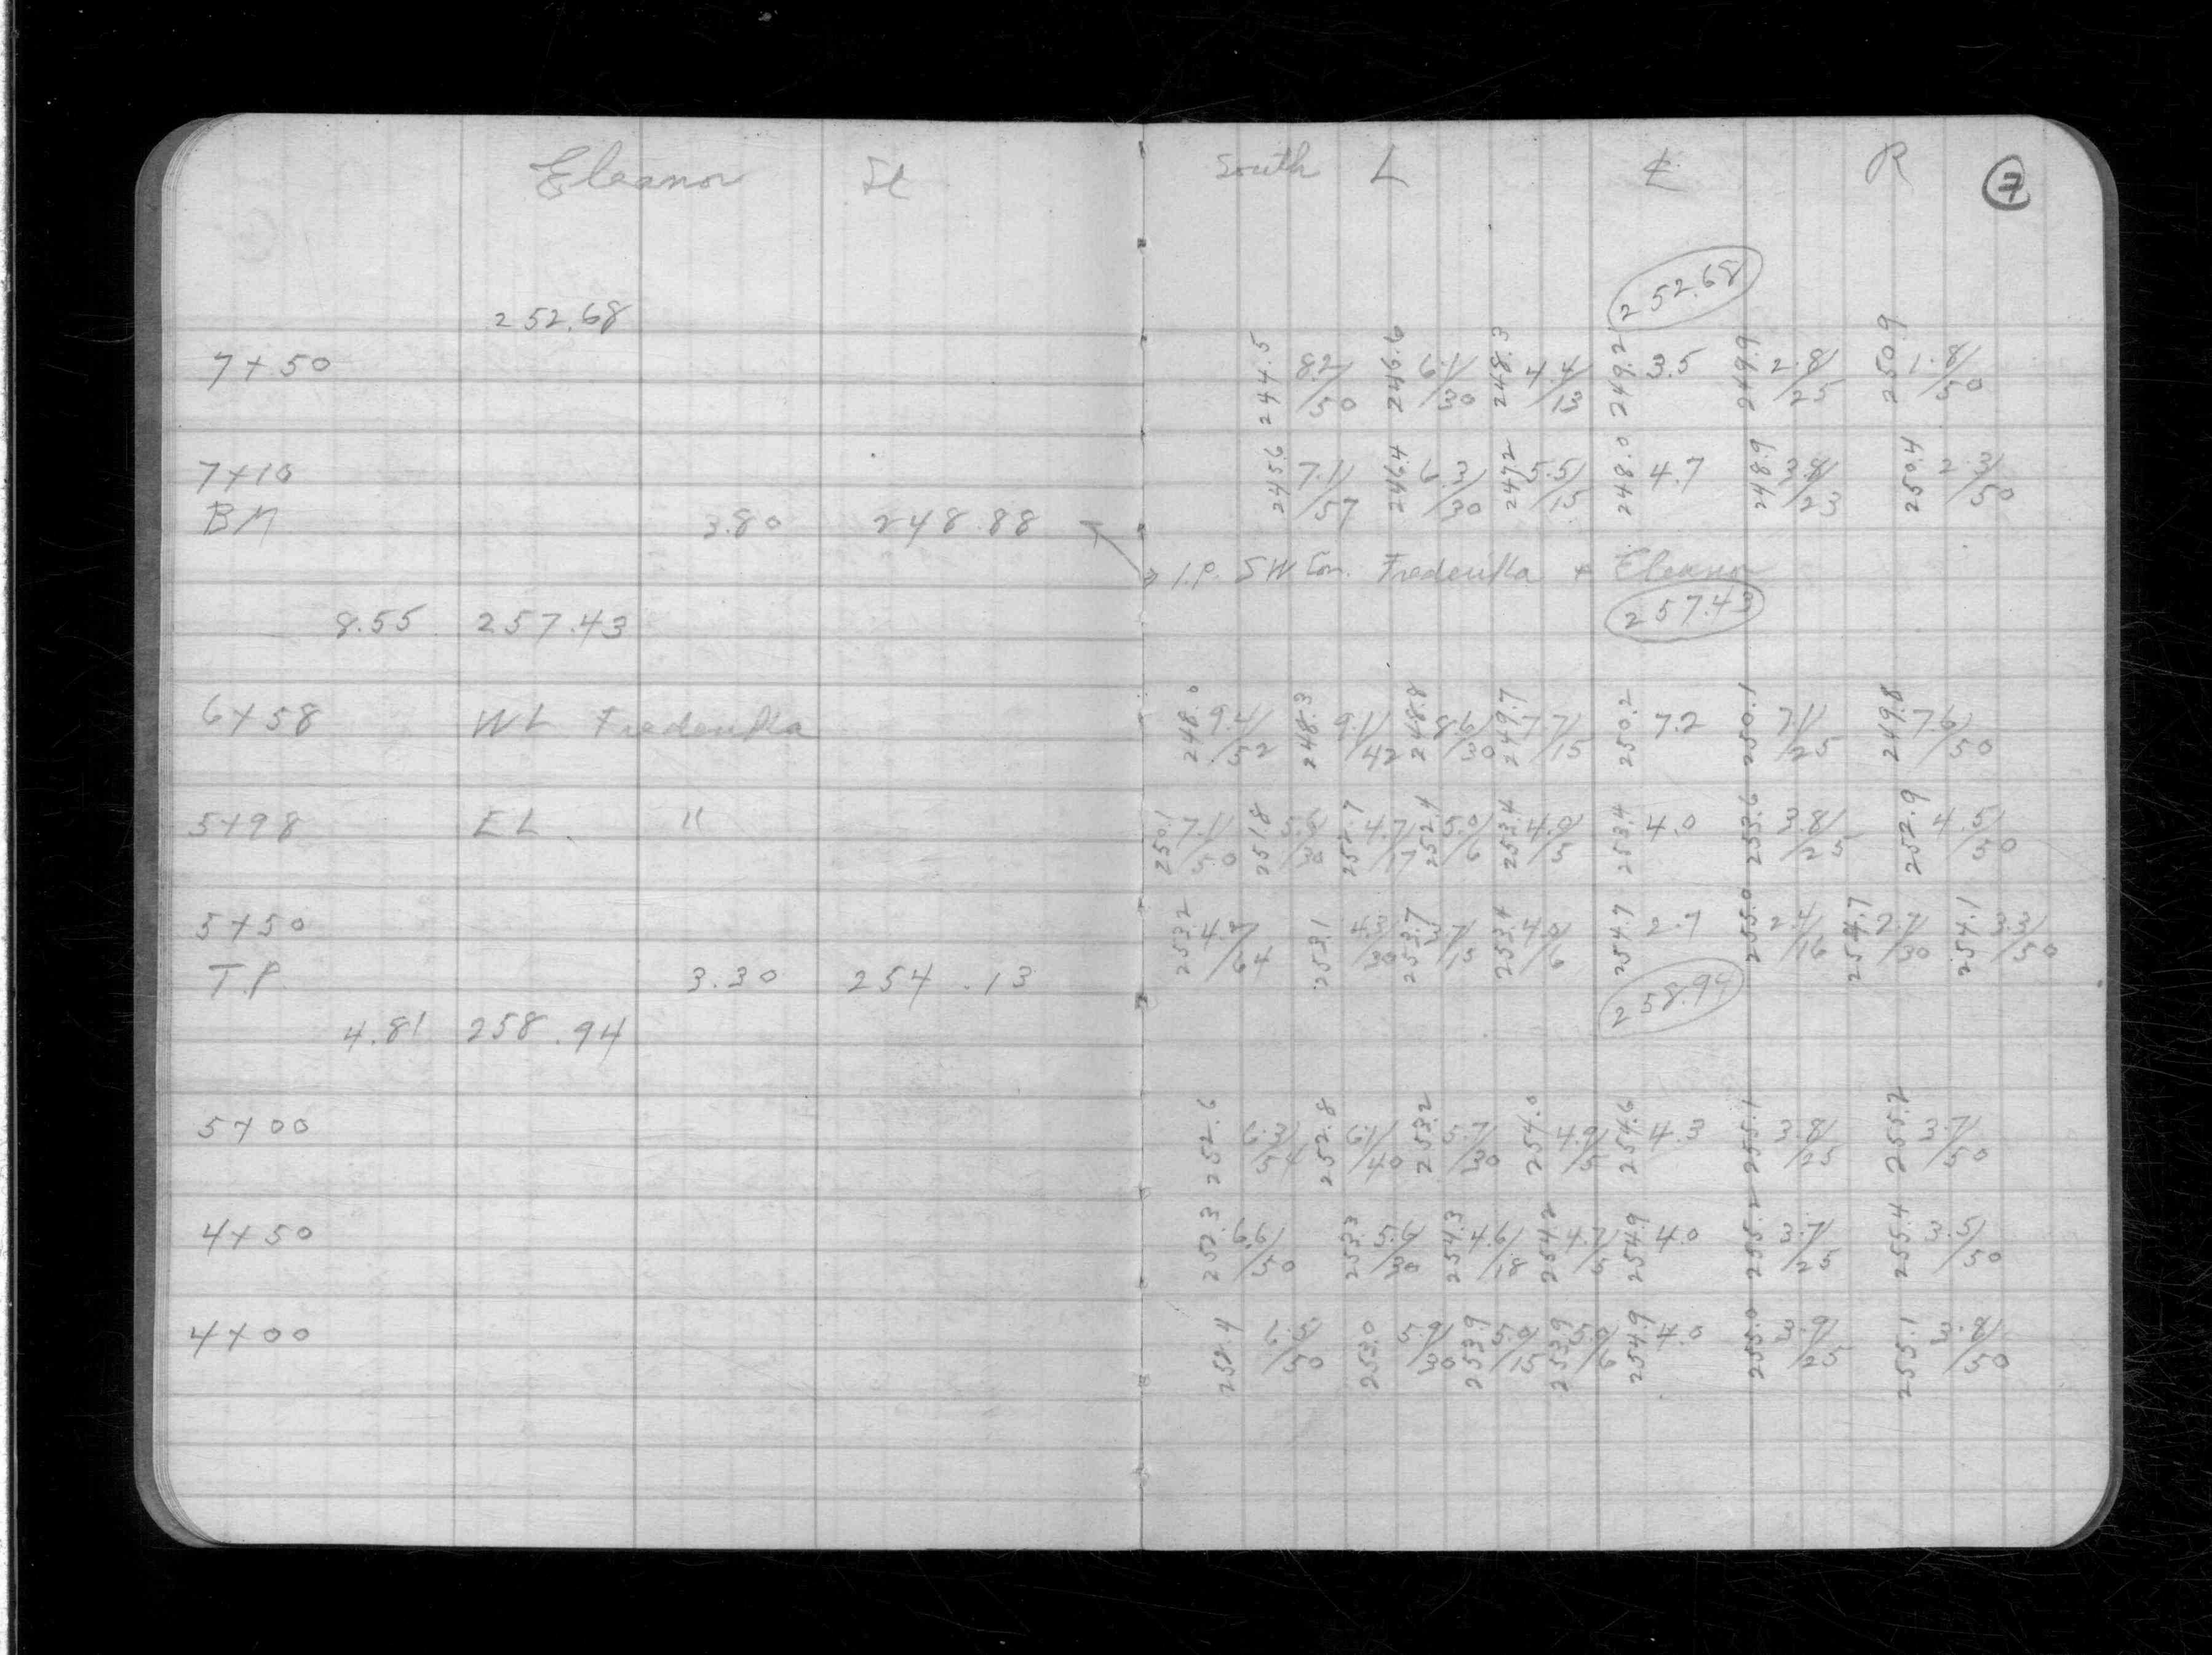 Eleanor St
South L ₵ R 7
252.68
252.68
7+50 244.5 8.2/50 246.6 6.1/30 248.3 4.4/13 249.2 3.5 249.9 2.8/25 250.9 1.8/50
7+10 245.6 7.1/57 246.4 6.3/30 247.2 5.5/15 248.0 4.7 248.9 3.8/23 250.4 2.3/50
BM 3.80 248.88
I.P. SW Cor. Frederika + Eleanor
8.55 257.43
257.43
6+58 WL Frederika 248.0 9.4/52 248.3 9.1/42 248.8 8.6/30 249.7 7.7/15 250.2 7.2 250.1 7.1/25 249.8 7.6/50
5+98 EL " 250.1 7.1/50 251.8 5.6/30 252.7 4.7/17 252.4 5.0/6 253.4 4.0/5 253.4 4.0 253.6 3.8/25 252.9 4.5/50
5+50 253.2 4.2/64 253.1 4.3/30 253.7 3.7/15 253.4 4.0/6 254.7 2.7 255.0 2.4/16 254.7 2.7/30 254.1 3.3/50
T.P. 3.30 254.13
258.94
4.81 258.94
5+00 252.6 6.3/54 252.8 6.1/40 253.2 5.7/30 254.0 4.9/5 254.6 4.3 255.1 3.8/25 255.2 3.7/50
4+50 252.3 6.6/50 253.3 5.6/30 254.3 4.6/18 254.2 4.7/5 254.9 4.0 255.2 3.7/25 255.4 3.5/50
4+00 252.4 6.5/50 253.0 5.9/30 253.9 5.0/15 253.9 5.0/6 254.9 4.0 255.0 3.9/25 255.1 3.8/50